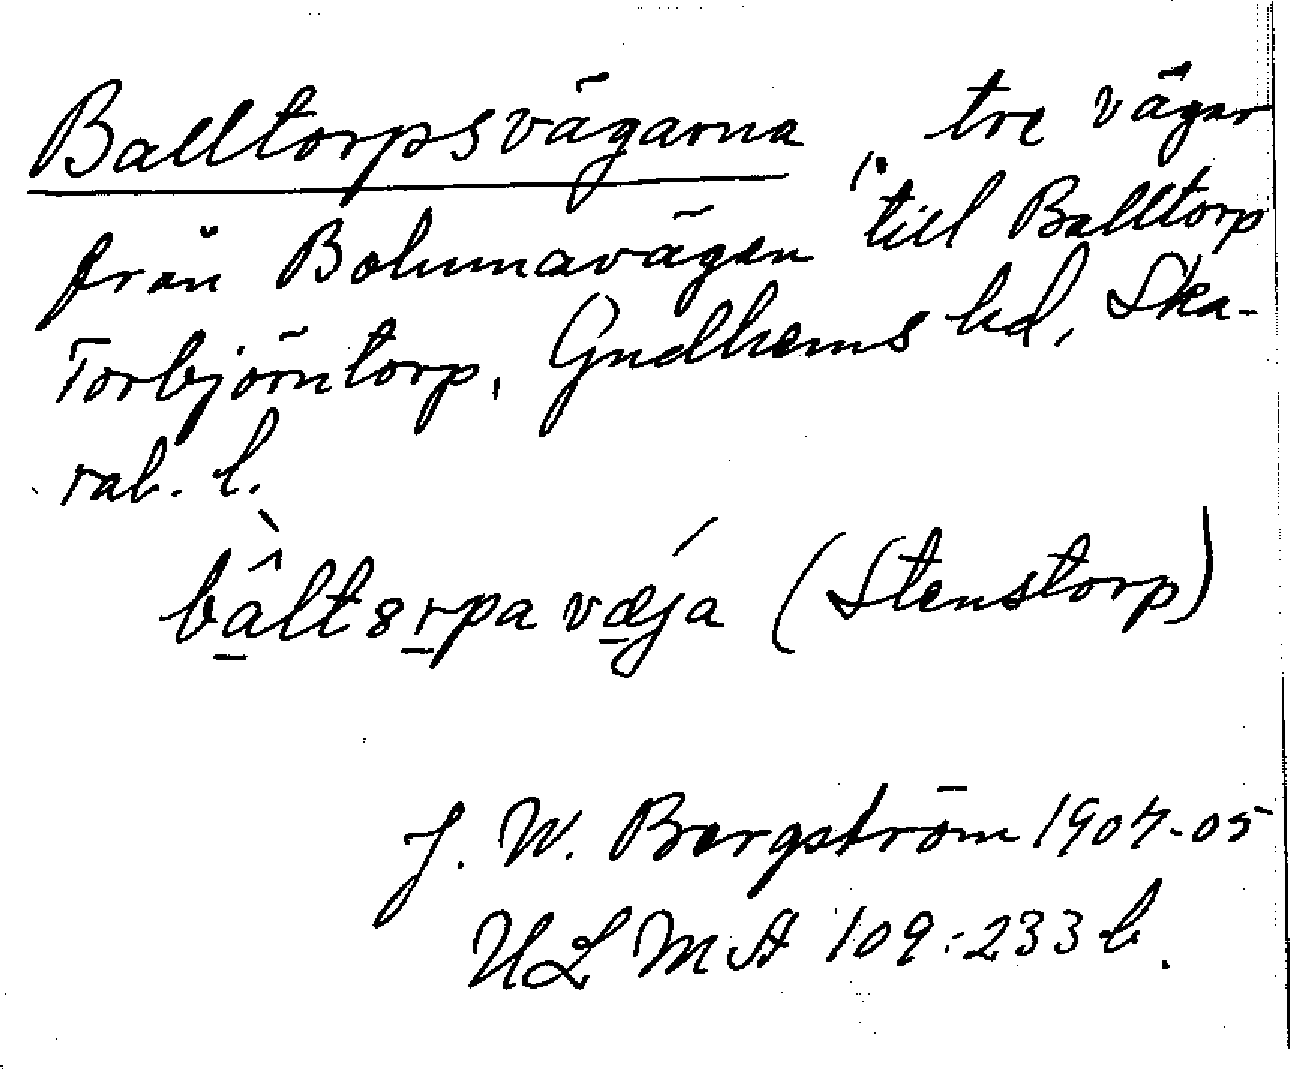 Balltorpsvägarna, tre vägar
från Bolumavägen till Balltorp i
Torbjörntorp, Gudhems hd, Ska-
rab. l.
bâ̱ltsr̠pa væ̠ja (Stenstorp)
J. W. Bergström 1904-05
ULMA 109:233 b.